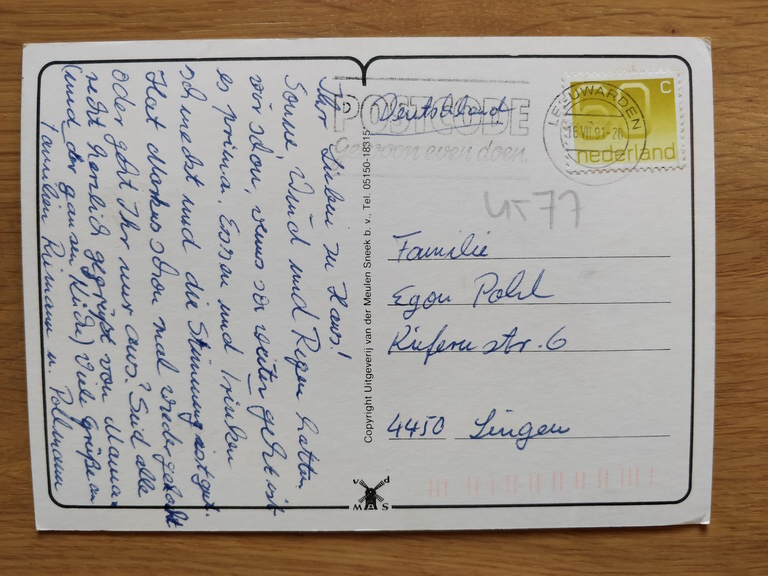 Ihr Lieben zu Haus!
Sonne, Wind und Regen hatten
wir schon, wenns so weiter geht ist
es prima. Essen und Trinken
schmeckt und die Stimmung ist gut.
Hat Markus schon mal wieder gekocht
oder geht Ihr nur aus? Seid alle
recht herzlich gegrüßt von Mama
(und der ganzen Küche) Viele Grüße an
Familien u. Pollmann
Copyright Uitgeverij van der Meulen Sneek b. v., Tel. 05150-18315
v d
MAS
Deutschland
POSTCODE
Gewoon even doen.
LEEUWARDEN
VII 91
60 c
nederland
4577
Familie
Egon Pohl
Kiefernstr. 6
4450 Lingen